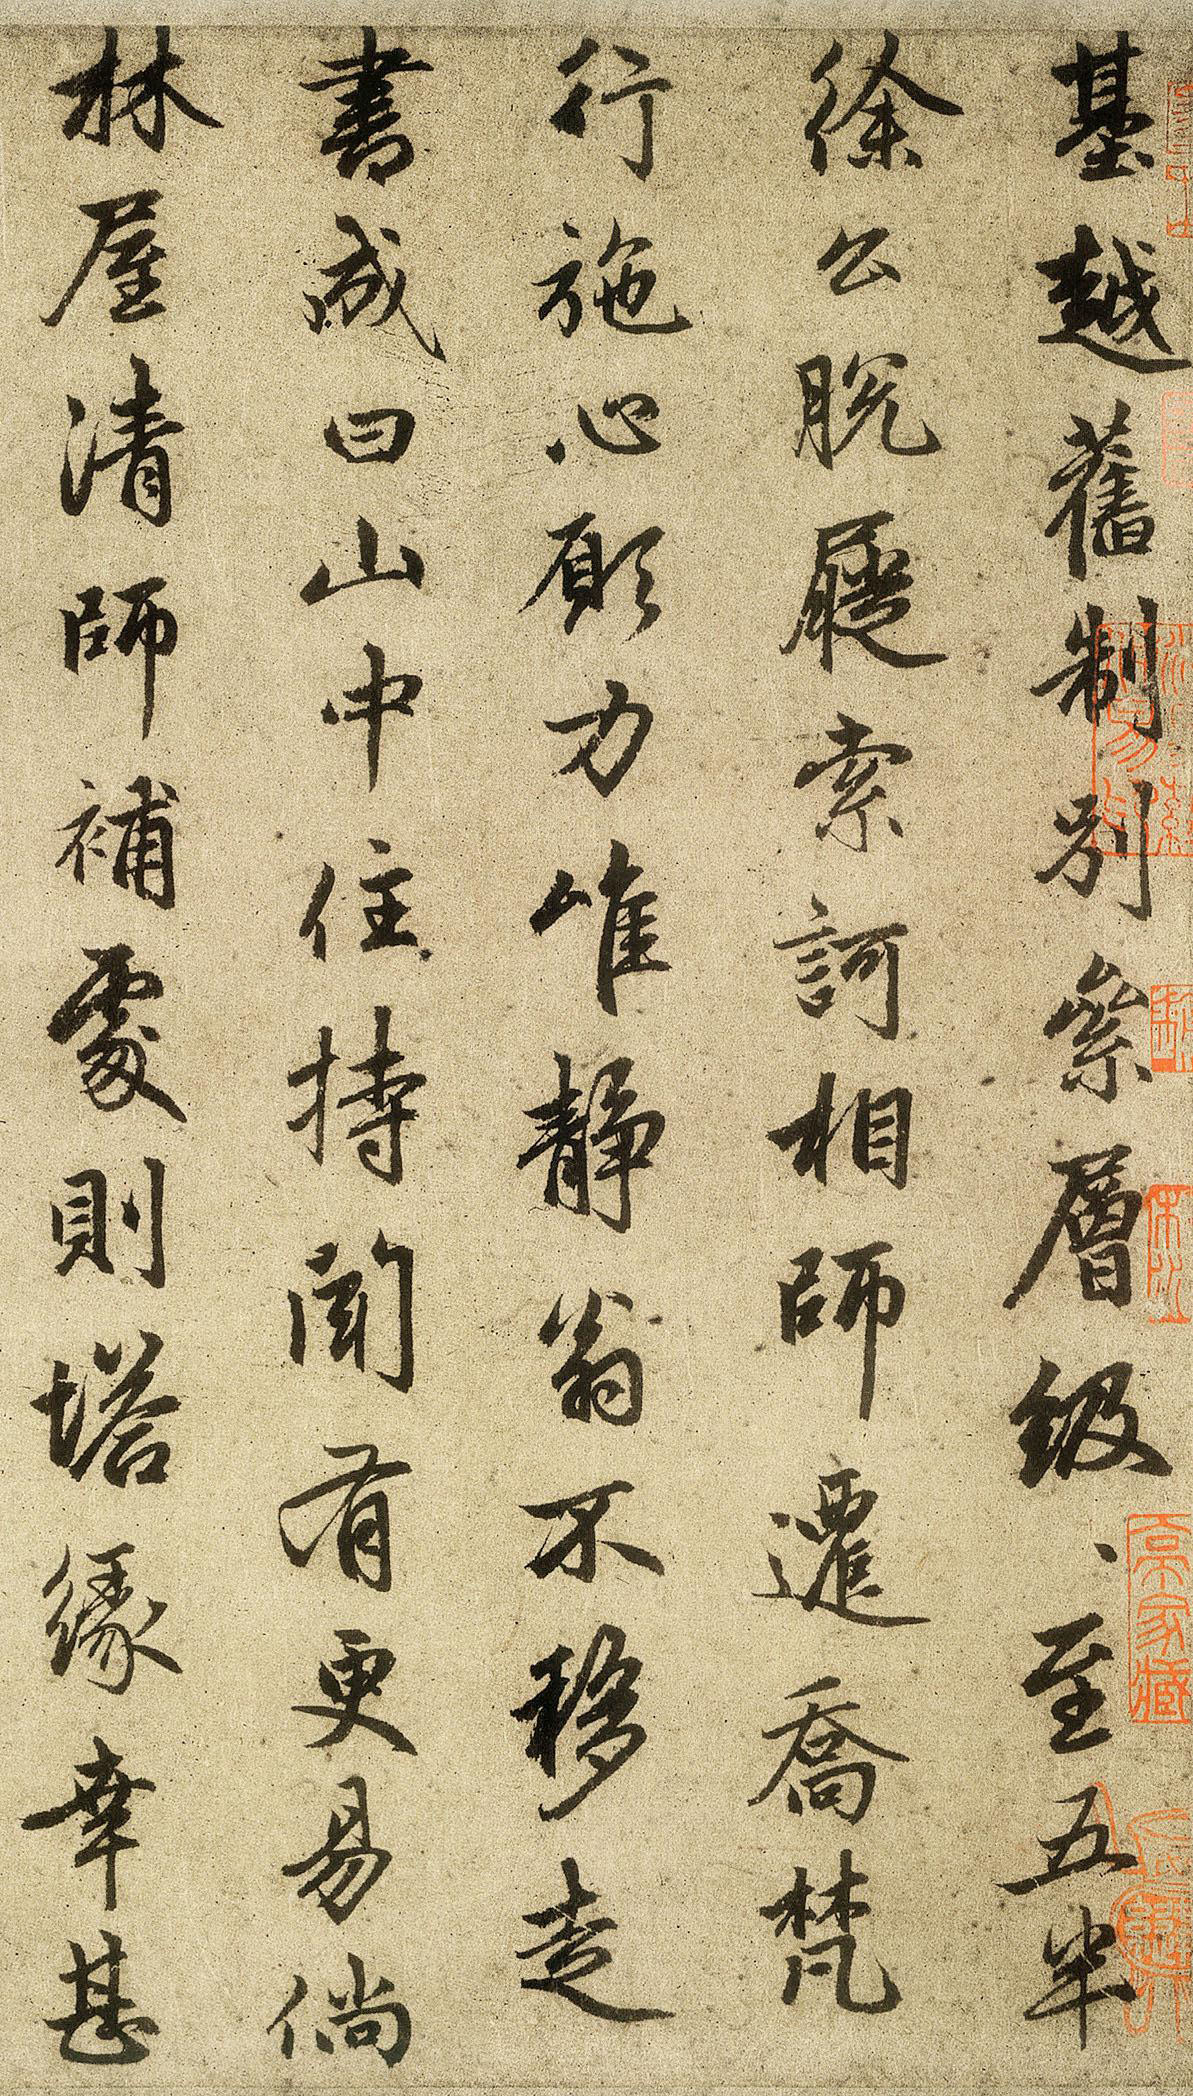 基越舊制別絫層級、至五半
徐公脫屣索訶相師遷喬梵
行施心願力唯静翁不移走
書咸曰山中住持聞有更易倘
林屋清師補處則塔緣幸甚